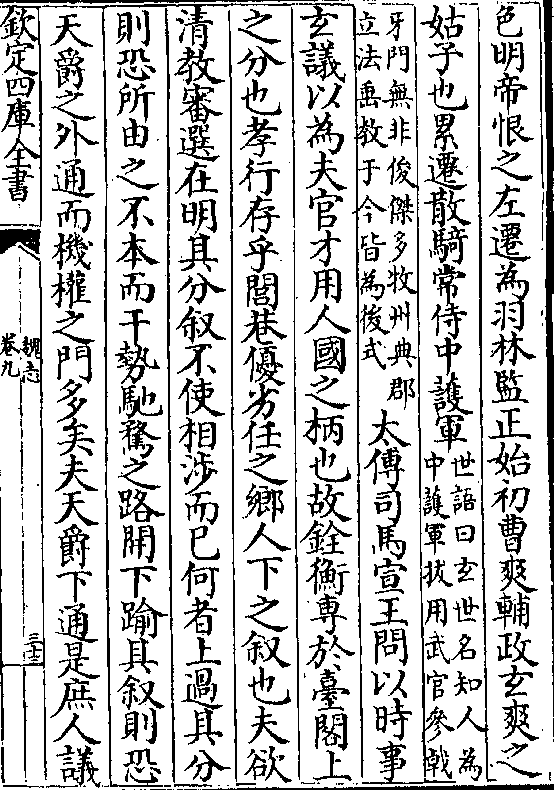 色明帝恨之左遷為羽林監正始初曹爽輔政玄爽之
姑子也累遷散騎常侍中護軍
世語曰玄世名知人為
中護軍拔用武官參戟
牙門無非俊傑多牧州典郡
立法垂教于今皆為後式
太傅司馬宣王問以時事
玄議以為夫官才用人國之柄也故銓衡專於臺閣上
之分也孝行存乎閭巷優劣任之鄉人下之叙也夫欲
清教審選在明其分叙不使相涉而已何者上過其分
則恐所由之不本而干勢馳騖之路開下踰其叙則恐
天爵之外通而機權之門多矣夫天爵下通是庶人議
欽定四庫全書
魏志
卷九
三十三